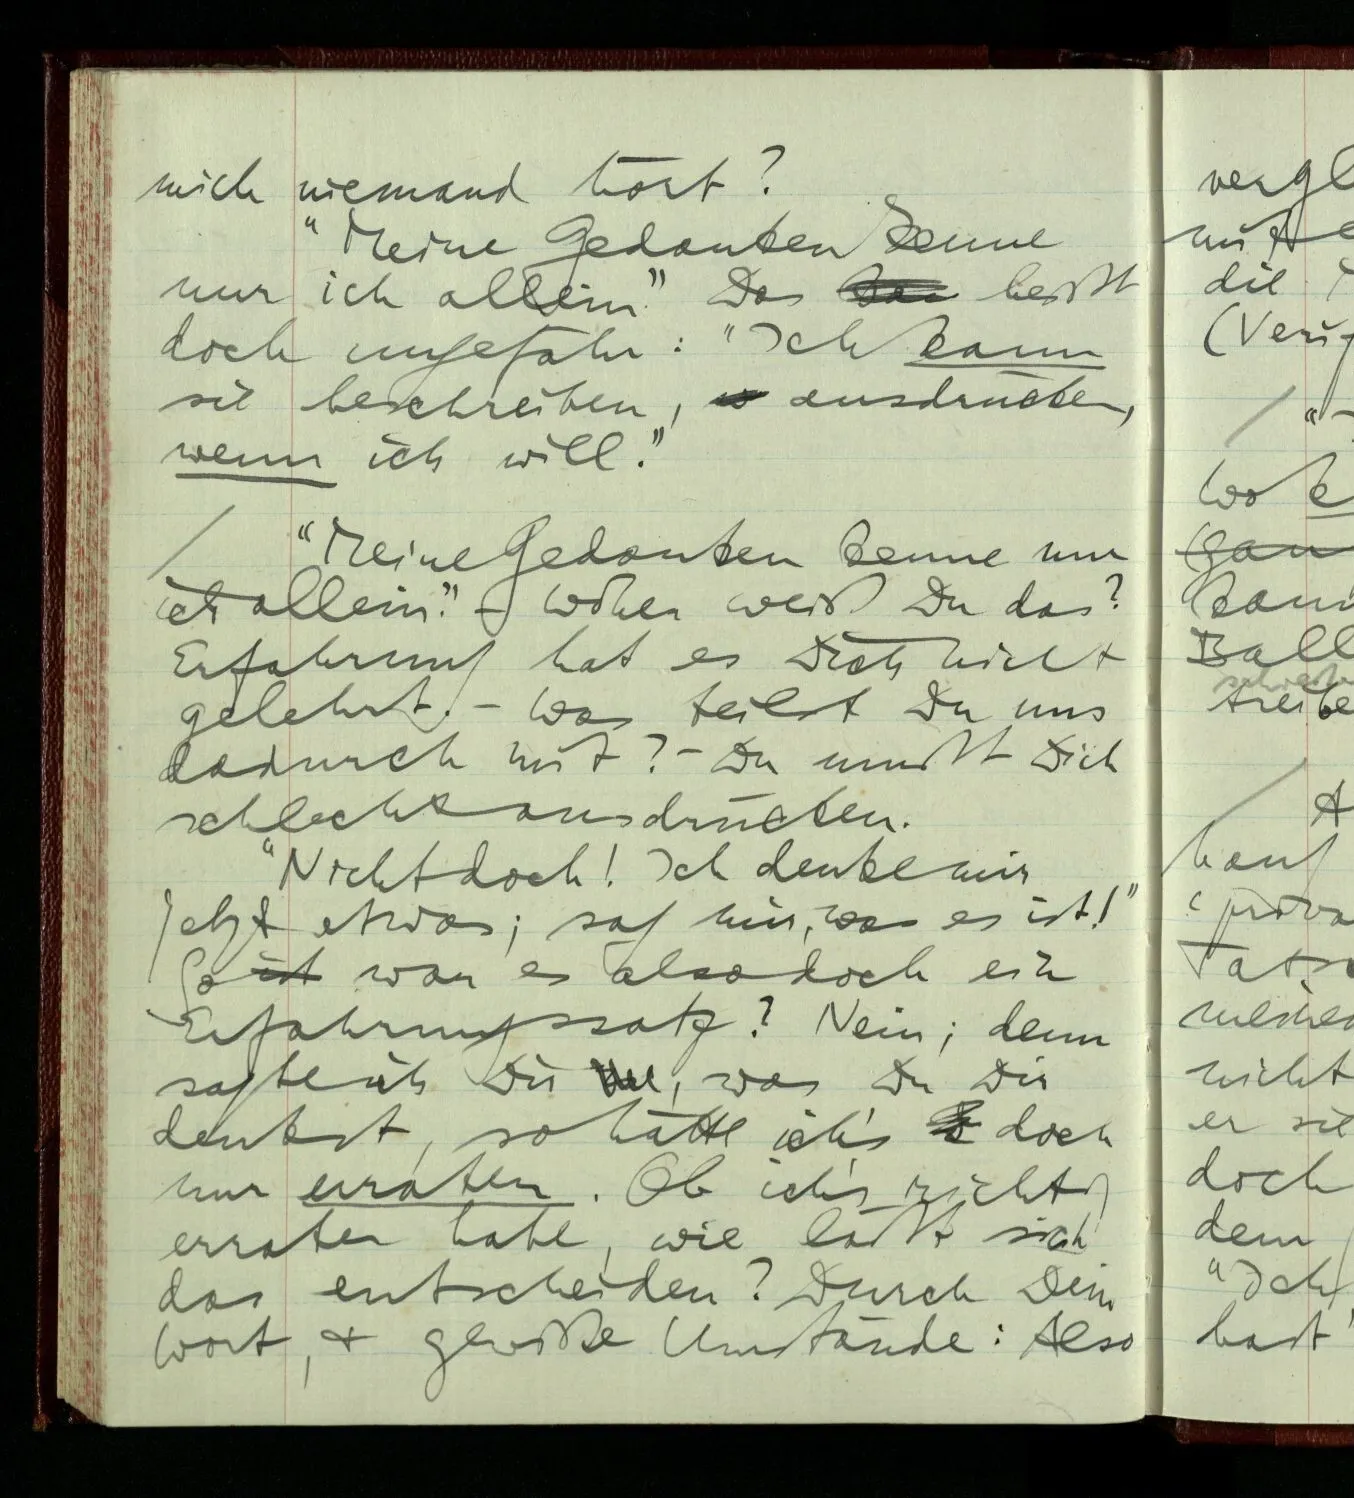 mich niemand hört?
"Meine Gedanken kenne
nur ich allein." Das heißt
doch ungefähr: "Ich kann
sie beschreiben, ausdrücken,
wenn ich will."
/ "Meine Gedanken kenne nur
ich allein." – Woher weißt Du das?
Erfahrung hat es Dich nicht
gelehrt. – Was teilst Du uns
dadurch mit? – Du mußt Dich
schlecht ausdrücken.
"Nicht doch! Ich denke mir
jetzt etwas; sag mir, was es ist!"
So ist war es also doch ein
Erfahrungssatz? Nein; denn
sagte ich Dir, was Du Dir
denkst, so hätte ich's doch
nur erraten. Ob ich's richtig
erraten habe, wie läßt sich
das entscheiden? Durch Dein
Wort, & gewiße Umstände: Also
vergl
die
(Verg
/ "
wo k
gan
kann
Ball
treibe
/ A
hauf
"priva
Tats
meinen
nicht
er sie
doch
dem
"Ich
hast